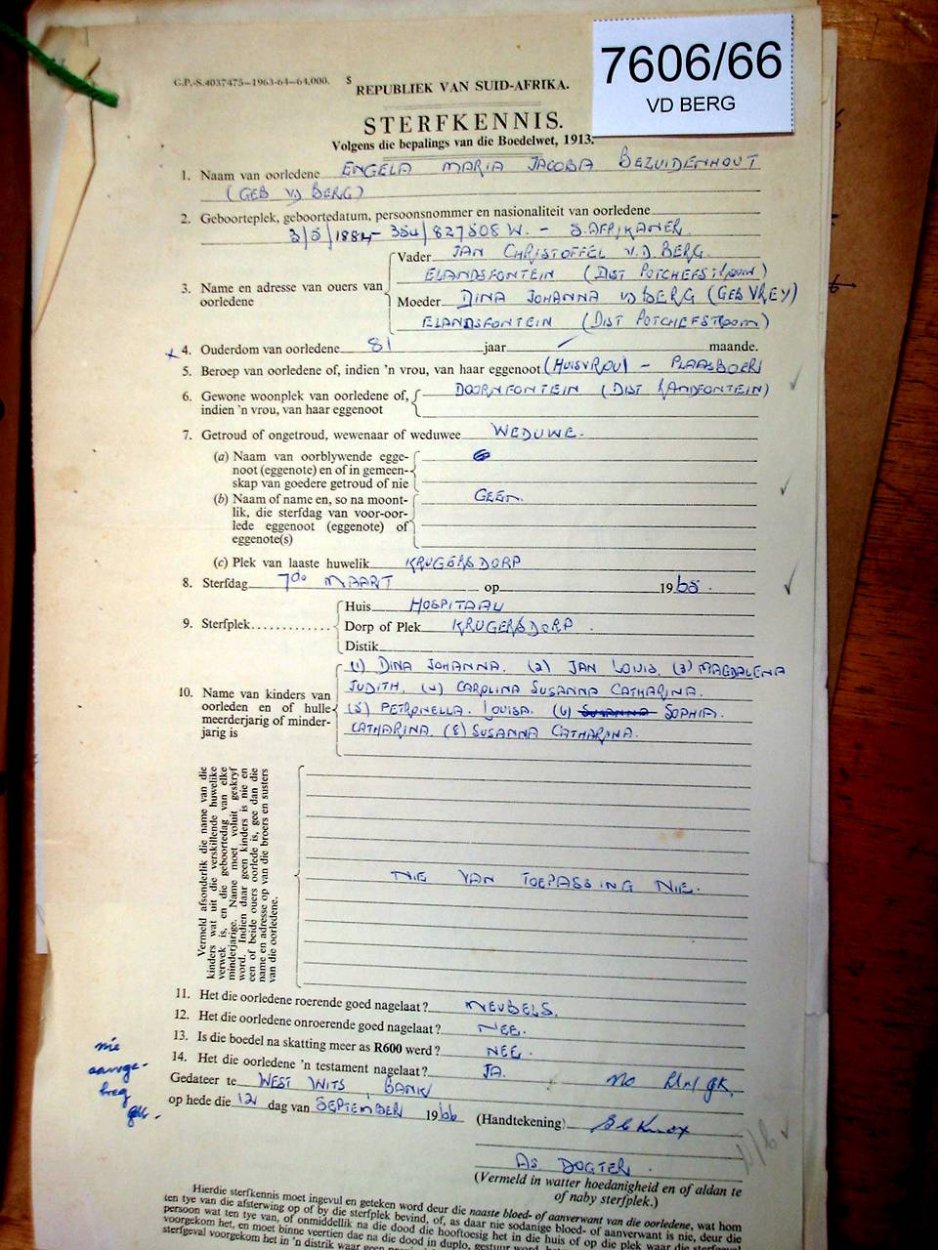 7606/66
VD BERG
G.P.-S.4037475—1963-64—64,000. S
REPUBLIEK VAN SUID-AFRIKA.
STERFKENNIS.
Volgens die bepalings van die Boedelwet, 1913.
1. Naam van oorledene ENGELA MARIA JACOBA BEZUIDENHOUT
(GEB VD BERG)
2. Geboorteplek, geboortedatum, persoonsnommer en nasionaliteit van oorledene
3/5/1884- 354/827508 W. - S. AFRIKANER.
3. Name en adresse van ouers van oorledene
Vader JAN CHRISTOFFEL V.D BERG.
ELANDSFONTEIN (DIST POTCHEFSTROOM)
Moeder DINA JOHANNA VD BERG (GEB VREY)
ELANDSFONTEIN (DIST POTCHEFSTROOM)
x 4. Ouderdom van oorledene 81 jaar maande.
5. Beroep van oorledene of, indien 'n vrou, van haar eggenoot (HUISVROU) - PLAASBOER
6. Gewone woonplek van oorledene of, DOORNFONTEIN (DIST RANDFONTEIN)
indien 'n vrou, van haar eggenoot
7. Getroud of ongetroud, wewenaar of weduwee WEDUWE.
(a) Naam van oorblywende egge-
noot (eggenote) en of in gemeen-
skap van goedere getroud of nie
(b) Naam of name en, so na moont- GEEN.
lik, die sterfdag van voor-oor-
lede eggenoot (eggenote) of
eggenote(s)
(c) Plek van laaste huwelik KRUGERSDORP
8. Sterfdag 7de MAART op 1966.
9. Sterfplek
Huis HOSPITAAL
Dorp of Plek KRUGERSDORP.
Distik
10. Name van kinders van
oorleden en of hulle
meerderjarig of minder-
jarig is
(1) DINA JOHANNA. (2) JAN LOUIS. (3) MAGDALENA
JUDITH. (4) CAROLINA SUSANNA CATHARINA.
(5) PETRONELLA. LOUISA. (6) SUSANNA SOPHIA.
CATHARINA. (8) SUSANNA CATHARINA.
Vermeld afsonderlik die name van die
kinders wat uit die verskillende huwelike
verwek is, en die geboortedag van elke
minderjarige. Name moet voluit geskryf
word. Indien daar geen kinders is nie en
een of beide ouers oorlede is, gee dan die
name en adresse op van die broers en susters
van die oorledene.
NIE VAN TOEPASSING NIE.
11. Het die oorledene roerende goed nagelaat? MEUBELS.
12. Het die oorledene onroerende goed nagelaat? NEE.
13. Is die boedel na skatting meer as R600 werd? NEE.
14. Het die oorledene 'n testament nagelaat? JA.
nie
aange-
Gedateer te WEST WITS, BANK
op hede die 12 dag van SEPTEMBER 1966 (Handtekening)
AS DOGTER.
(Vermeld in watter hoedanigheid en of aldan te
of naby sterfplek.)
Hierdie sterfkennis moet ingevul en geteken word deur die naaste bloed- of aanverwant van die oorledene, wat hom
ten tye van die afsterwing op of by die sterfplek bevind, of, as daar nie sodanige bloed- of aanverwant is nie, deur die
persoon wat ten tye van, of onmiddellik na die dood die hooftoesig het in die huis of op die plek waar die sterfgeval
voorgekom het, en moet binne veertien dae na die dood in duplo, gestuur word
sterfgeval voorgekom het in 'n distrik waar geen